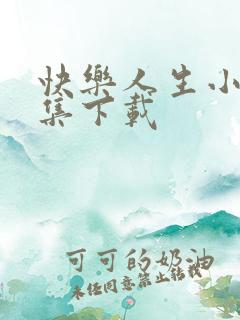 快樂人生小
集下載
可可的奶油
未經同意禁止轉載